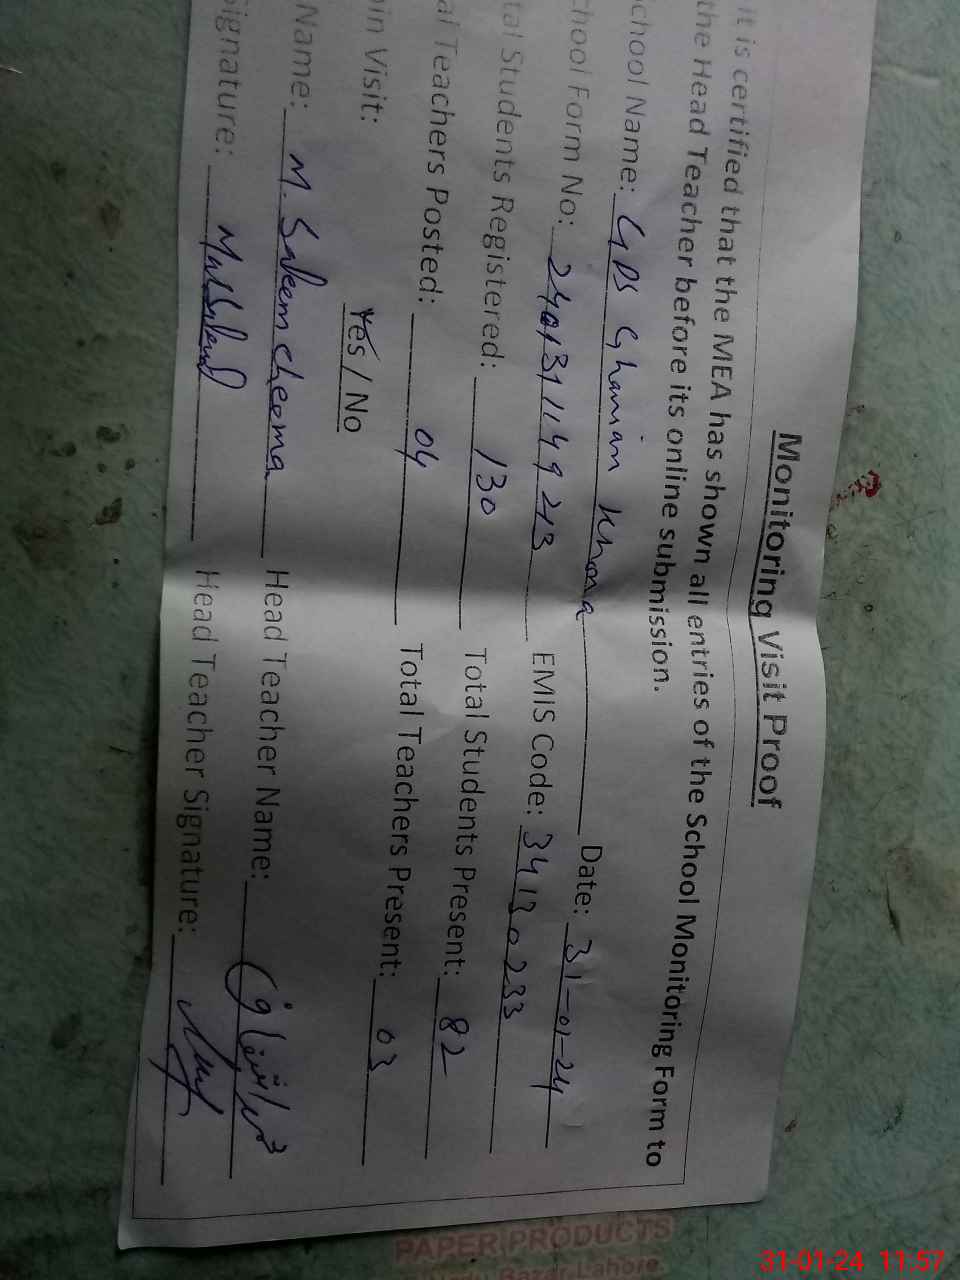 Monitoring Visit Proof
It is certified that the MEA has shown all entries of the School Monitoring Form to
the Head Teacher before its online submission.
chool Name: GPS Ghanian Khona Date: 31-01-24
chool Form No: 2401311149213 EMIS Code: 34130233
tal Students Registered: 130 Total Students Present: 82
al Teachers Posted: 04 Total Teachers Present: 03
in Visit: Yes / No
Name: M. Saleem cheema Head Teacher Name: محمد اشفاق
ignature: Head Teacher Signature:
PAPER PRODUCTS
Bazar Lahore
31-01-24 11:57